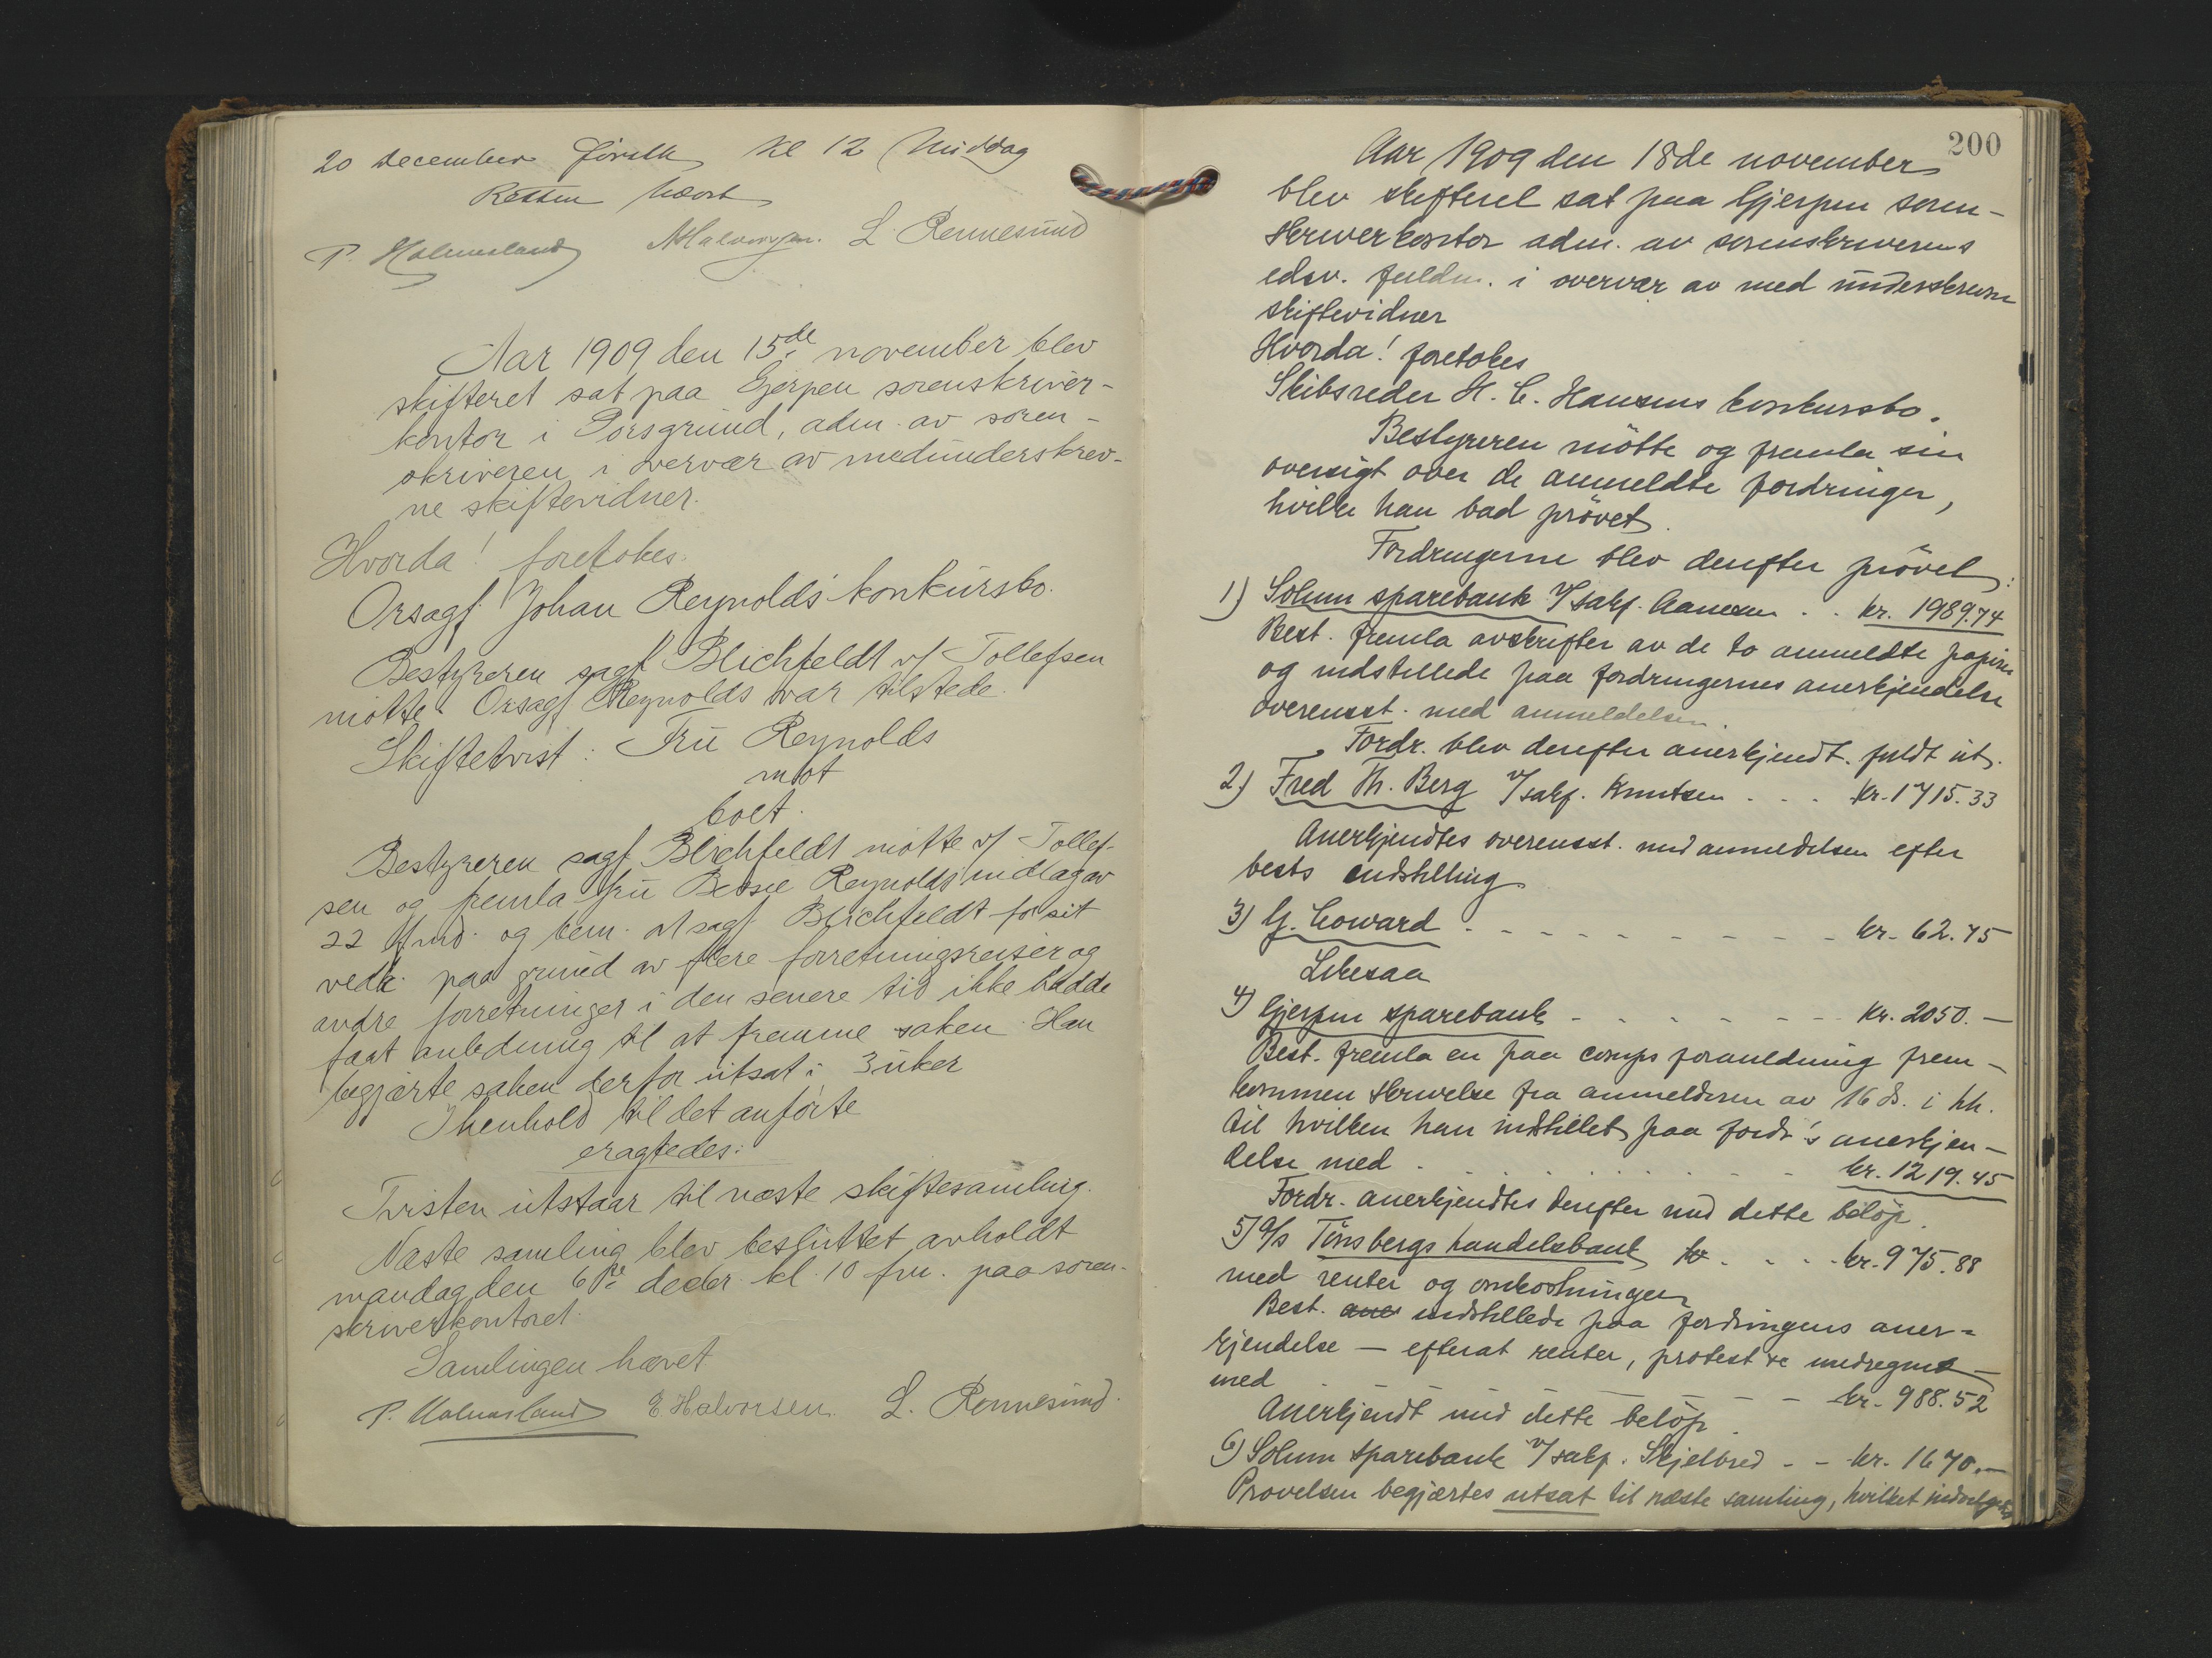 20 december førstk kl 12 Middag
Retten hævet
P. Holmesland NHalvorsen. L. Rennesund
Aar 1909 den 15de november blev
skifteret sat paa Gjerpen sorenskriver-
kontor i Porsgrund, adm. av soren-
skriveren i overvær av medunderskrev-
ne skiftevidner.
Hvorda! foretokes:
Orsagf. Johan Reynolds' konkursbo.
Bestyreren sagf Blichfeldt v/ Tollefsen
møtte. Orsagf Reynolds var tilstede.
Skiftetvist: Fru Reynolds
mot
boet.
Bestyreren sagf. Blichfeldt møtte v/ Tollef-
sen og fremla fru Bessie Reynolds indlæg av
22 f. md. og bem. at sagf Blichfeldt for sit
vedk. paa grund av flere forretningsreiser og
andre forretninger i den senere tid ikke hadde
faat anledning til at fremme saken. Han
begjærte saken derfor utsat i 3 uker
I henhold til det anførte
eragtedes:
Tvisten utstaar til næste skiftesamling.
Næste samling blev besluttet avholdt
mandag den 6te decbr. kl. 10 fm. paa soren-
skriverkontoret.
Samlingen hævet
P. Holmesland E Halvorsen. L. Rennesund.
200
Aar 1909 den 18de november
blev skifteret sat paa Gjerpen soren-
skriverkontor adm. av sorenskriverens
edsv. fuldm. i overvær av med underskrevne
skiftevidner
Hvorda! foretokes
Skibsreder H. C. Hansens konkursbo.
Bestyreren møtte og fremla sin
oversigt over de anmeldte fordringer,
hvilke han bad prøvet.
Fordringerne blev derefter prøvet:
1) Solum sparebank v/ sakf. Aanesen . . kr. 1989.74
Best. fremla avskrifter av de to anmeldte papirer
og indstillede paa fordringernes anerkjendelse
overensst. med anmeldelsen.
Fordr. blev derefter anerkjendt fuldt ut.
2) Fred Th. Berg v/ sakf. Knutsen . . . kr. 1715.33
Anerkjendtes overensst. med anmeldelsen efter
bests indstilling
3) G. Coward - - - - - - - - - - kr. 62.75
Likesaa
4) Gjerpen sparebank - - - - - - - kr. 2050.—
Best. fremla en paa comps foranledning frem-
kommen skrivelse fra anmelderen av 16 ds. i hh.
til hvilken han indstillet paa fordr's anerkjen-
delse med . . . . . . . . - - kr. 1219.45
Fordr. anerkjendtes derefter med dette beløp.
5) A/s Tønsbergs handelsbank kr . . . . kr. 975.88
med renter og omkostninger
Best. aner indstillede paa fordringens aner-
kjendelse — efterat renter, protest &c medregnet —
med . - - - - - - - kr. 988.52
Anerkjendt med dette beløp.
6) Solum sparebank v/ sakf. Skjelbred - - kr. 1670.—
Prøvelsen begjærtes utsat til næste samling, hvilket indvilgedes